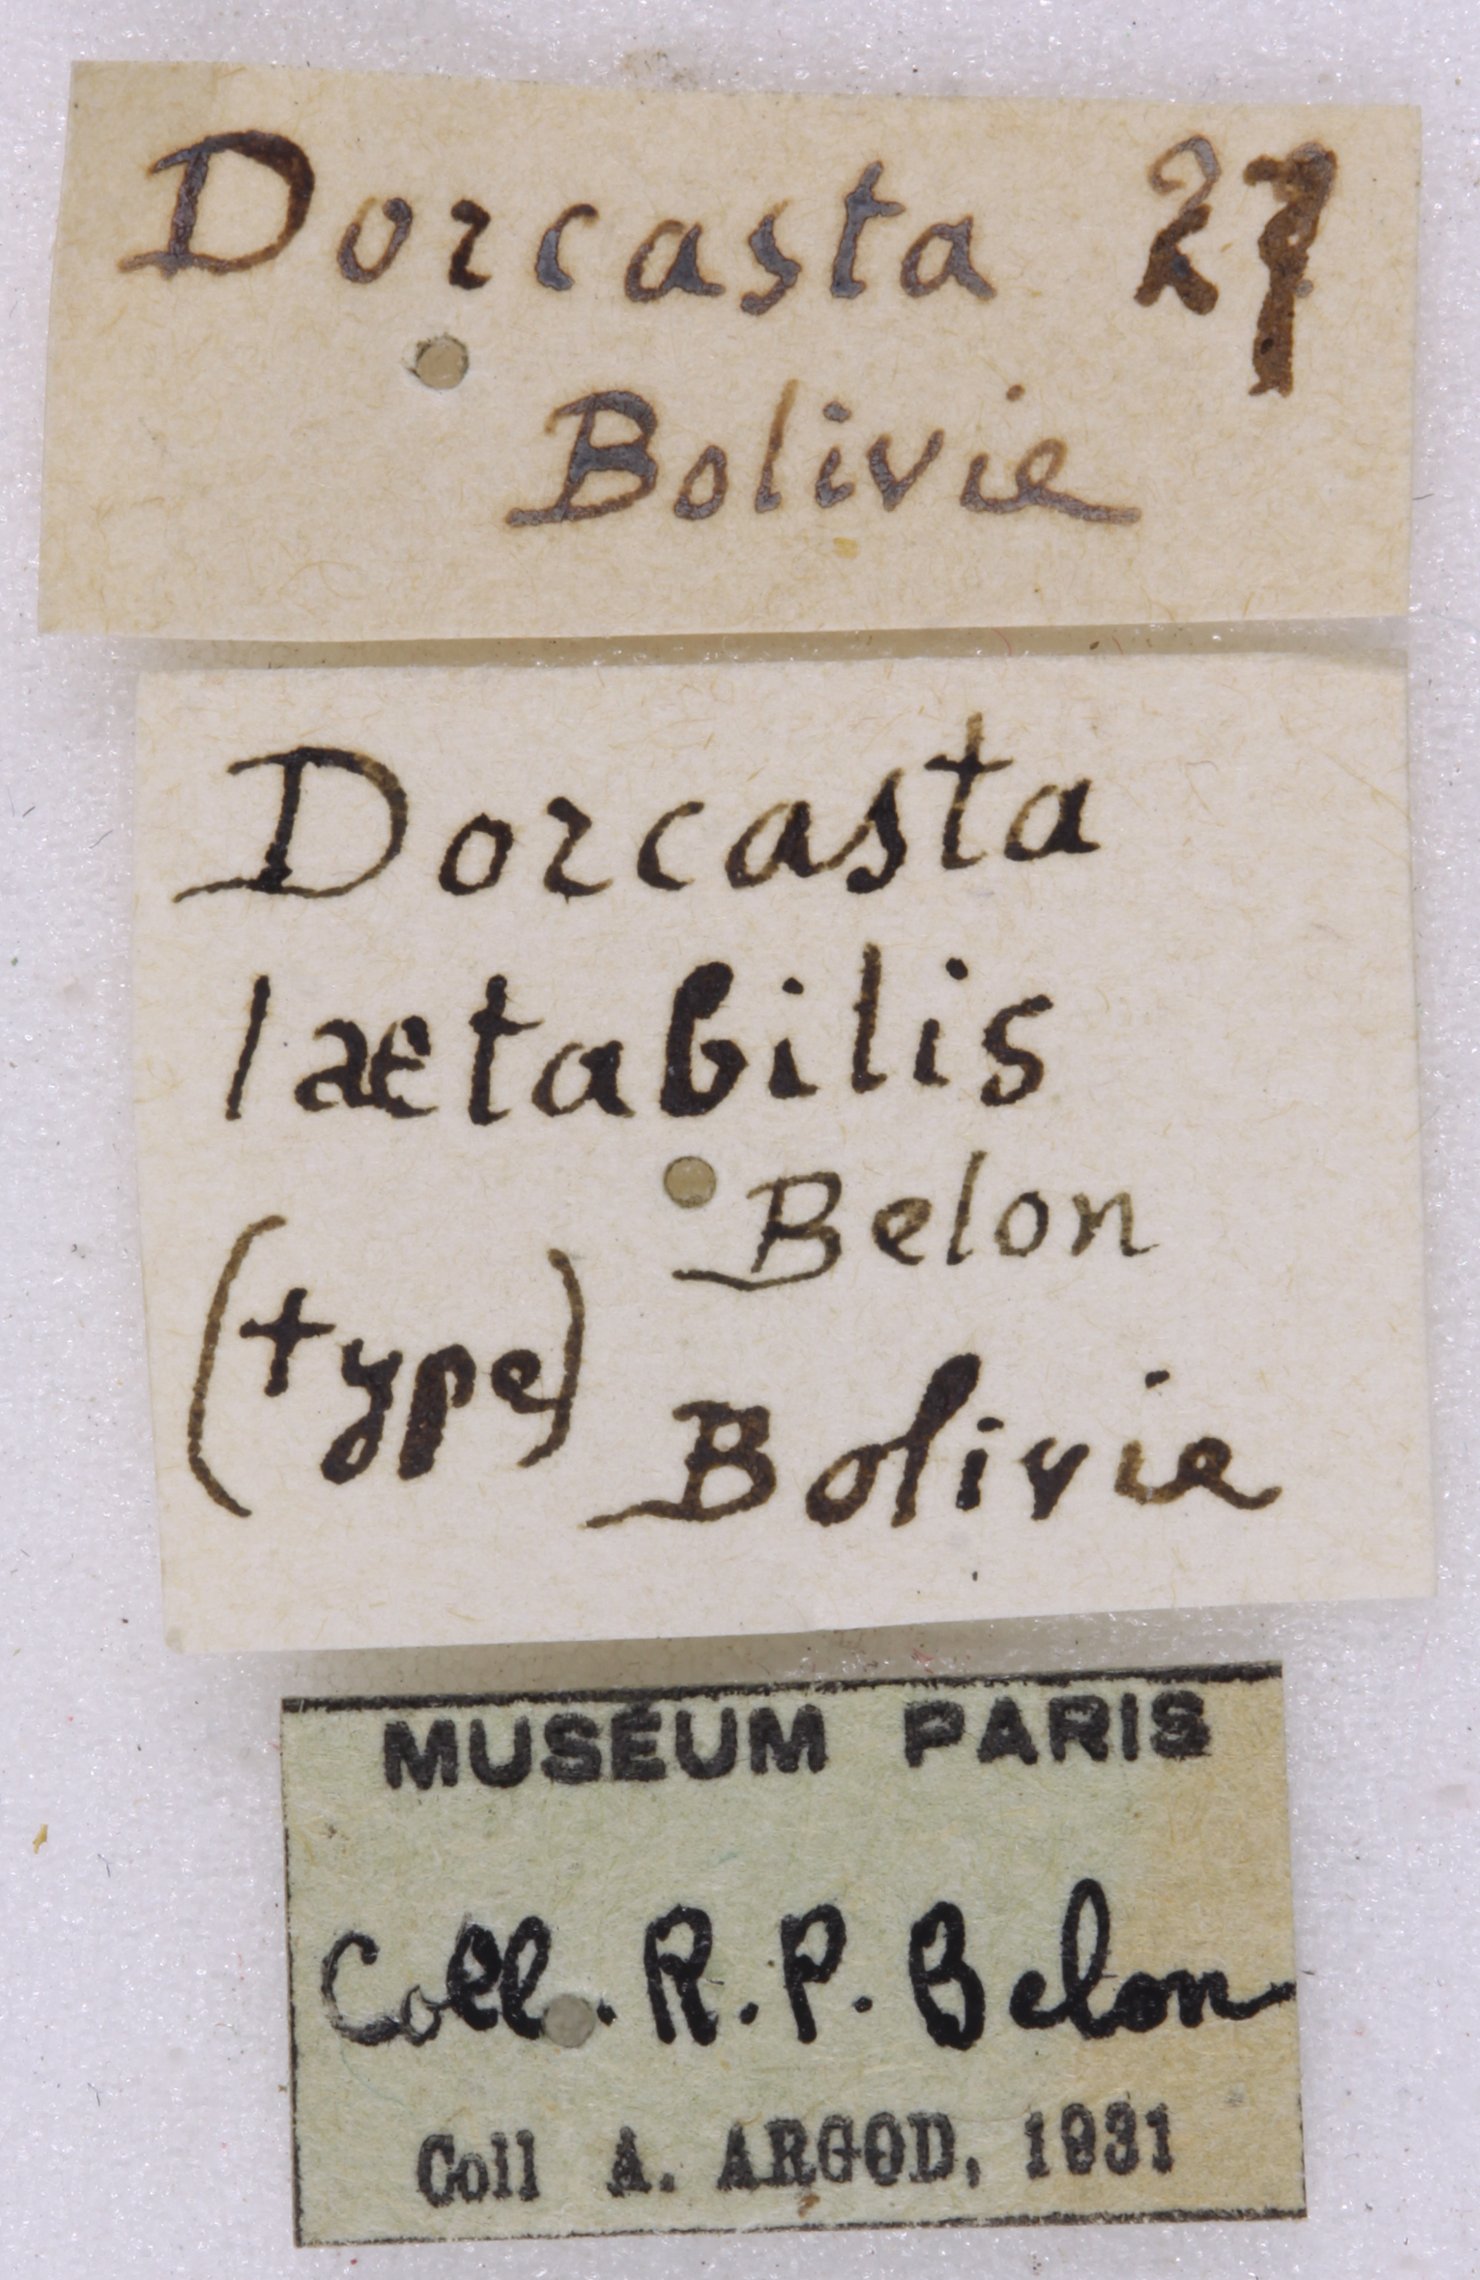 Dorcasta 27
Bolivie
Dorcasta
laetabilis
Belon
(type)
Bolivie
MUSÉUM PARIS
Coll. R. P. Belon
Coll A. ARGOD, 1931